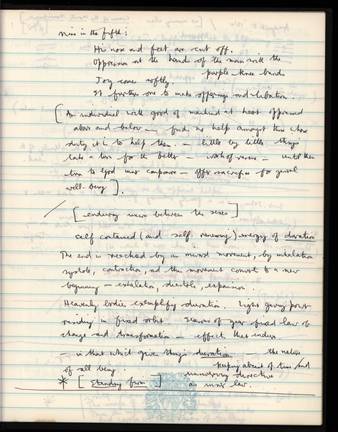 Nine in the fifth:
His nose and feet are cut off.
Oppression at the hands of the man with the
purple knee bands
Joy comes softly.
It furthers one to make offerings and libations
[An individual with good of mankind at heart oppressed
above and below — finds no help amongst those whose
duty it is to help them. — little by little things
take a turn for the better — until then
turn to God in composure — offer sacrifice for general
well-being].
[enduring union between the sexes]
self contained (and self renewing) energy of duration
The end is reached by an inward movement, by inhalation
systole, contraction, and this movement converts to a new
beginning — exhalation, diastole, expansion.
Heavenly bodies exemplify duration. Light giving power
in fixed orbit. Seasons of year fixed law of
change and transformation — effects that endure
— in that which gives things duration — the nature
of all being. keeping abreast of time but
unswerving directive
* [Standing firm] as inner law.